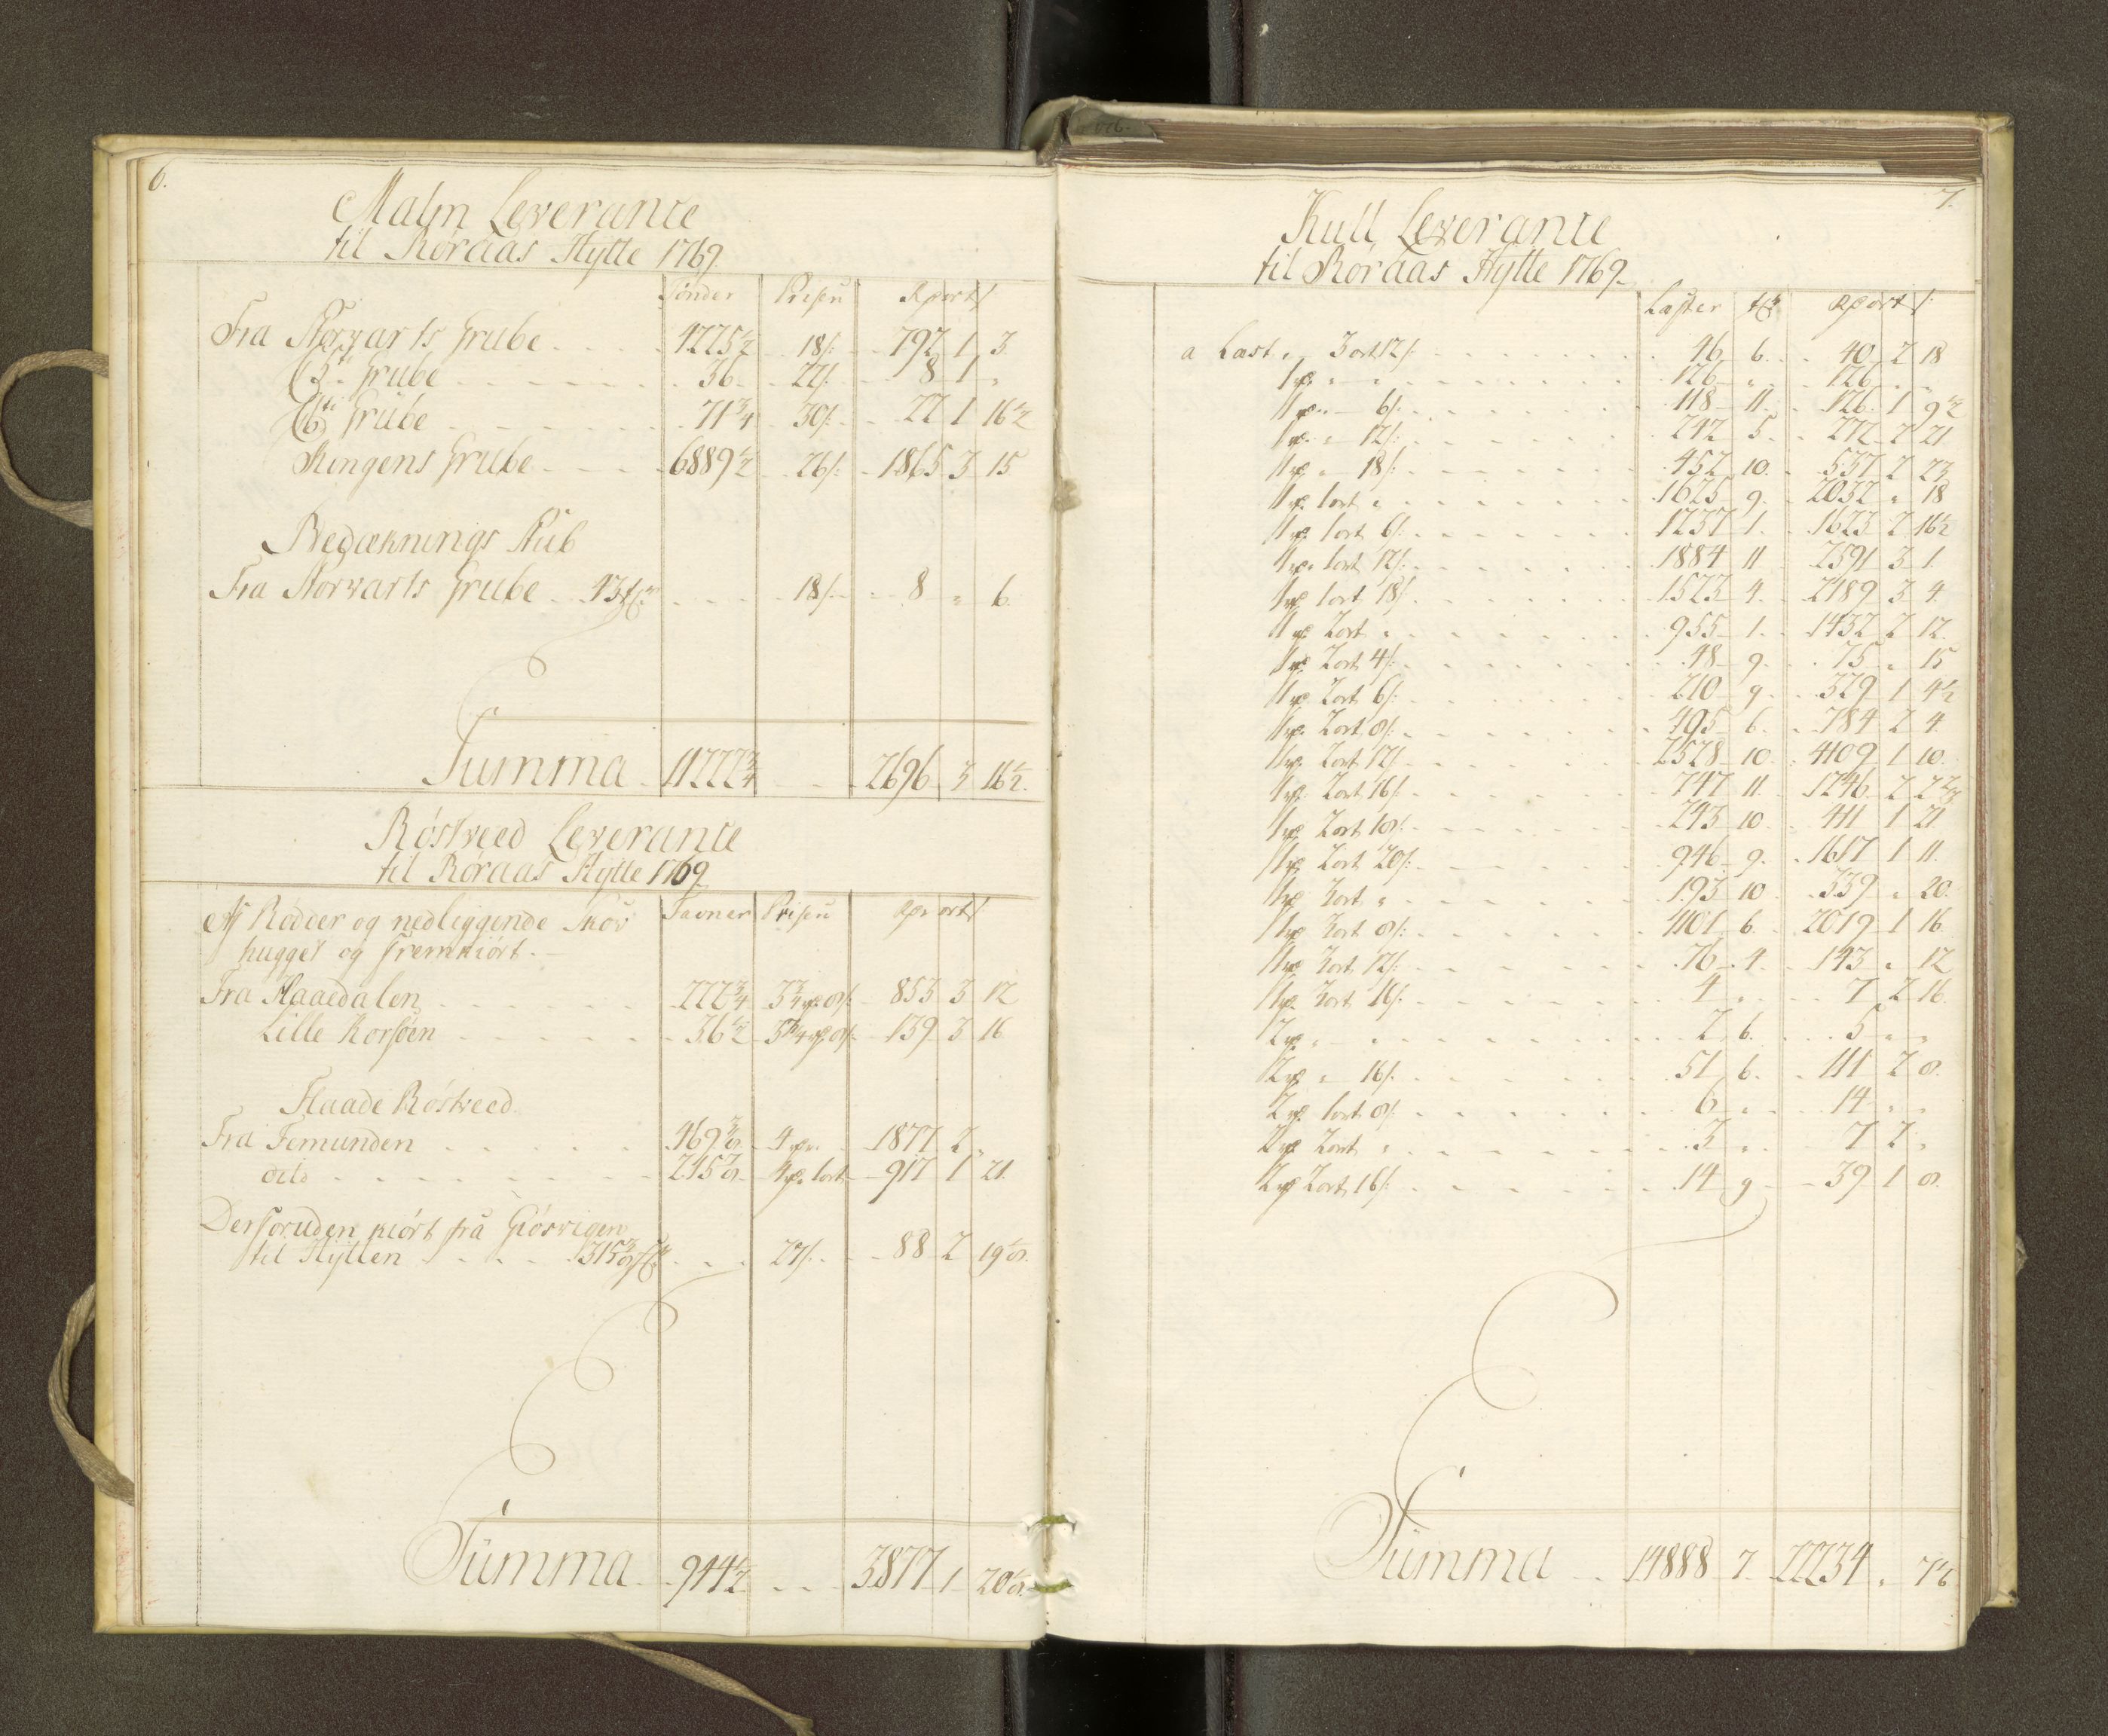 6.
Malm Leverance
til Røraas Hytte 1769.
Tønder Prisen Rp ort s.
Fra Storvarts Grube 4225½ 18s. 792 1 3.
5te Grube 36 22s. 8 1 "
6te Grube 71¾ 30s. 22 1 16½
Kongens Grube 6889½ 26s. 1865 3 15
Bedækknings Stub
Fra Storvarts Grube 43 18s. 8 " 6.
Summa 11222¾ 2696 3 16½.
Røstveed Leverance
til Røraas Hytte 1769.
Af Rødder og nedliggende Skov Favner Prisen Rp ort s.
hugget og fremkiørt.
Fra Haaedalen 222¾ 3¾ rp 8s. 853 3 12
Lille Korsøen 36½ 3¾ rp 8s. 139 3 16
Flaade Røstveed
Fra Femunden 469⅜ 4 rp. 1877 2 "
dito 215⅞ 4 rp. 1 ort 917 1 21.
Desforuden kiørt fra Giøsvigen
til Hytten 315⅜ 27s. 88 2 19⅛.
Summa 944½ 3877 1 20⅛.
7.
Kull Leverance
til Røraas Hytte 1769.
Læster tr Rp ort s.
a Læst " 3 ort 12s. 46 6. 40 2 18
1 rp. " " 126 " 126 " "
1 rp. " 6s. 118 11. 126 1 9½
1 rp. " 12s. 242 5. 272 2 21
1 rp. " 18s. 452 10. 537 2 23
1 rp. 1 ort " 1625 9. 2032 " 18
1 rp. 1 ort 6s. 1237 1. 1623 2 16½
1 rp. 1 ort 12s. 1884 11 2591 3 1.
1 rp. 1 ort 18s. 1523 4. 2189 3 4.
1 rp. 2 ort " 955 1. 1432 2 12.
1 rp. 2 ort 4s. 48 9. 75 " 15
1 rp. 2 ort 6s. 210 9. 329 1 4½
1 rp. 2 ort 8s. 495 6. 784 2 4.
1 rp. 2 ort 12s. 2528 10. 4109 1 10.
1 rp. 2 ort 16s. 747 11. 1246 2 2⅔
1 rp. 2 ort 18s. 243 10 411 1 21
1 rp. 2 ort 20s. 946 9. 1617 1 11.
1 rp. 3 ort " 193 10 339 " 20.
1 rp. 3 ort 8s. 1101 6. 2019 1 16.
1 rp. 3 ort 12s. 76 4. 143 " 12
1 rp. 3 ort 16s. 4 " 7 2 16.
2 rp. " " 2 6. 5 " "
2 rp. " 16s. 51 6. 111 2 8.
2 rp. 1 ort 8s. 6 " 14 " "
2 rp. 2 ort " 3 " 7 2 "
2 rp. 2 ort 16s. 14 9 39 1 8.
Summa 14888 7 22234 "